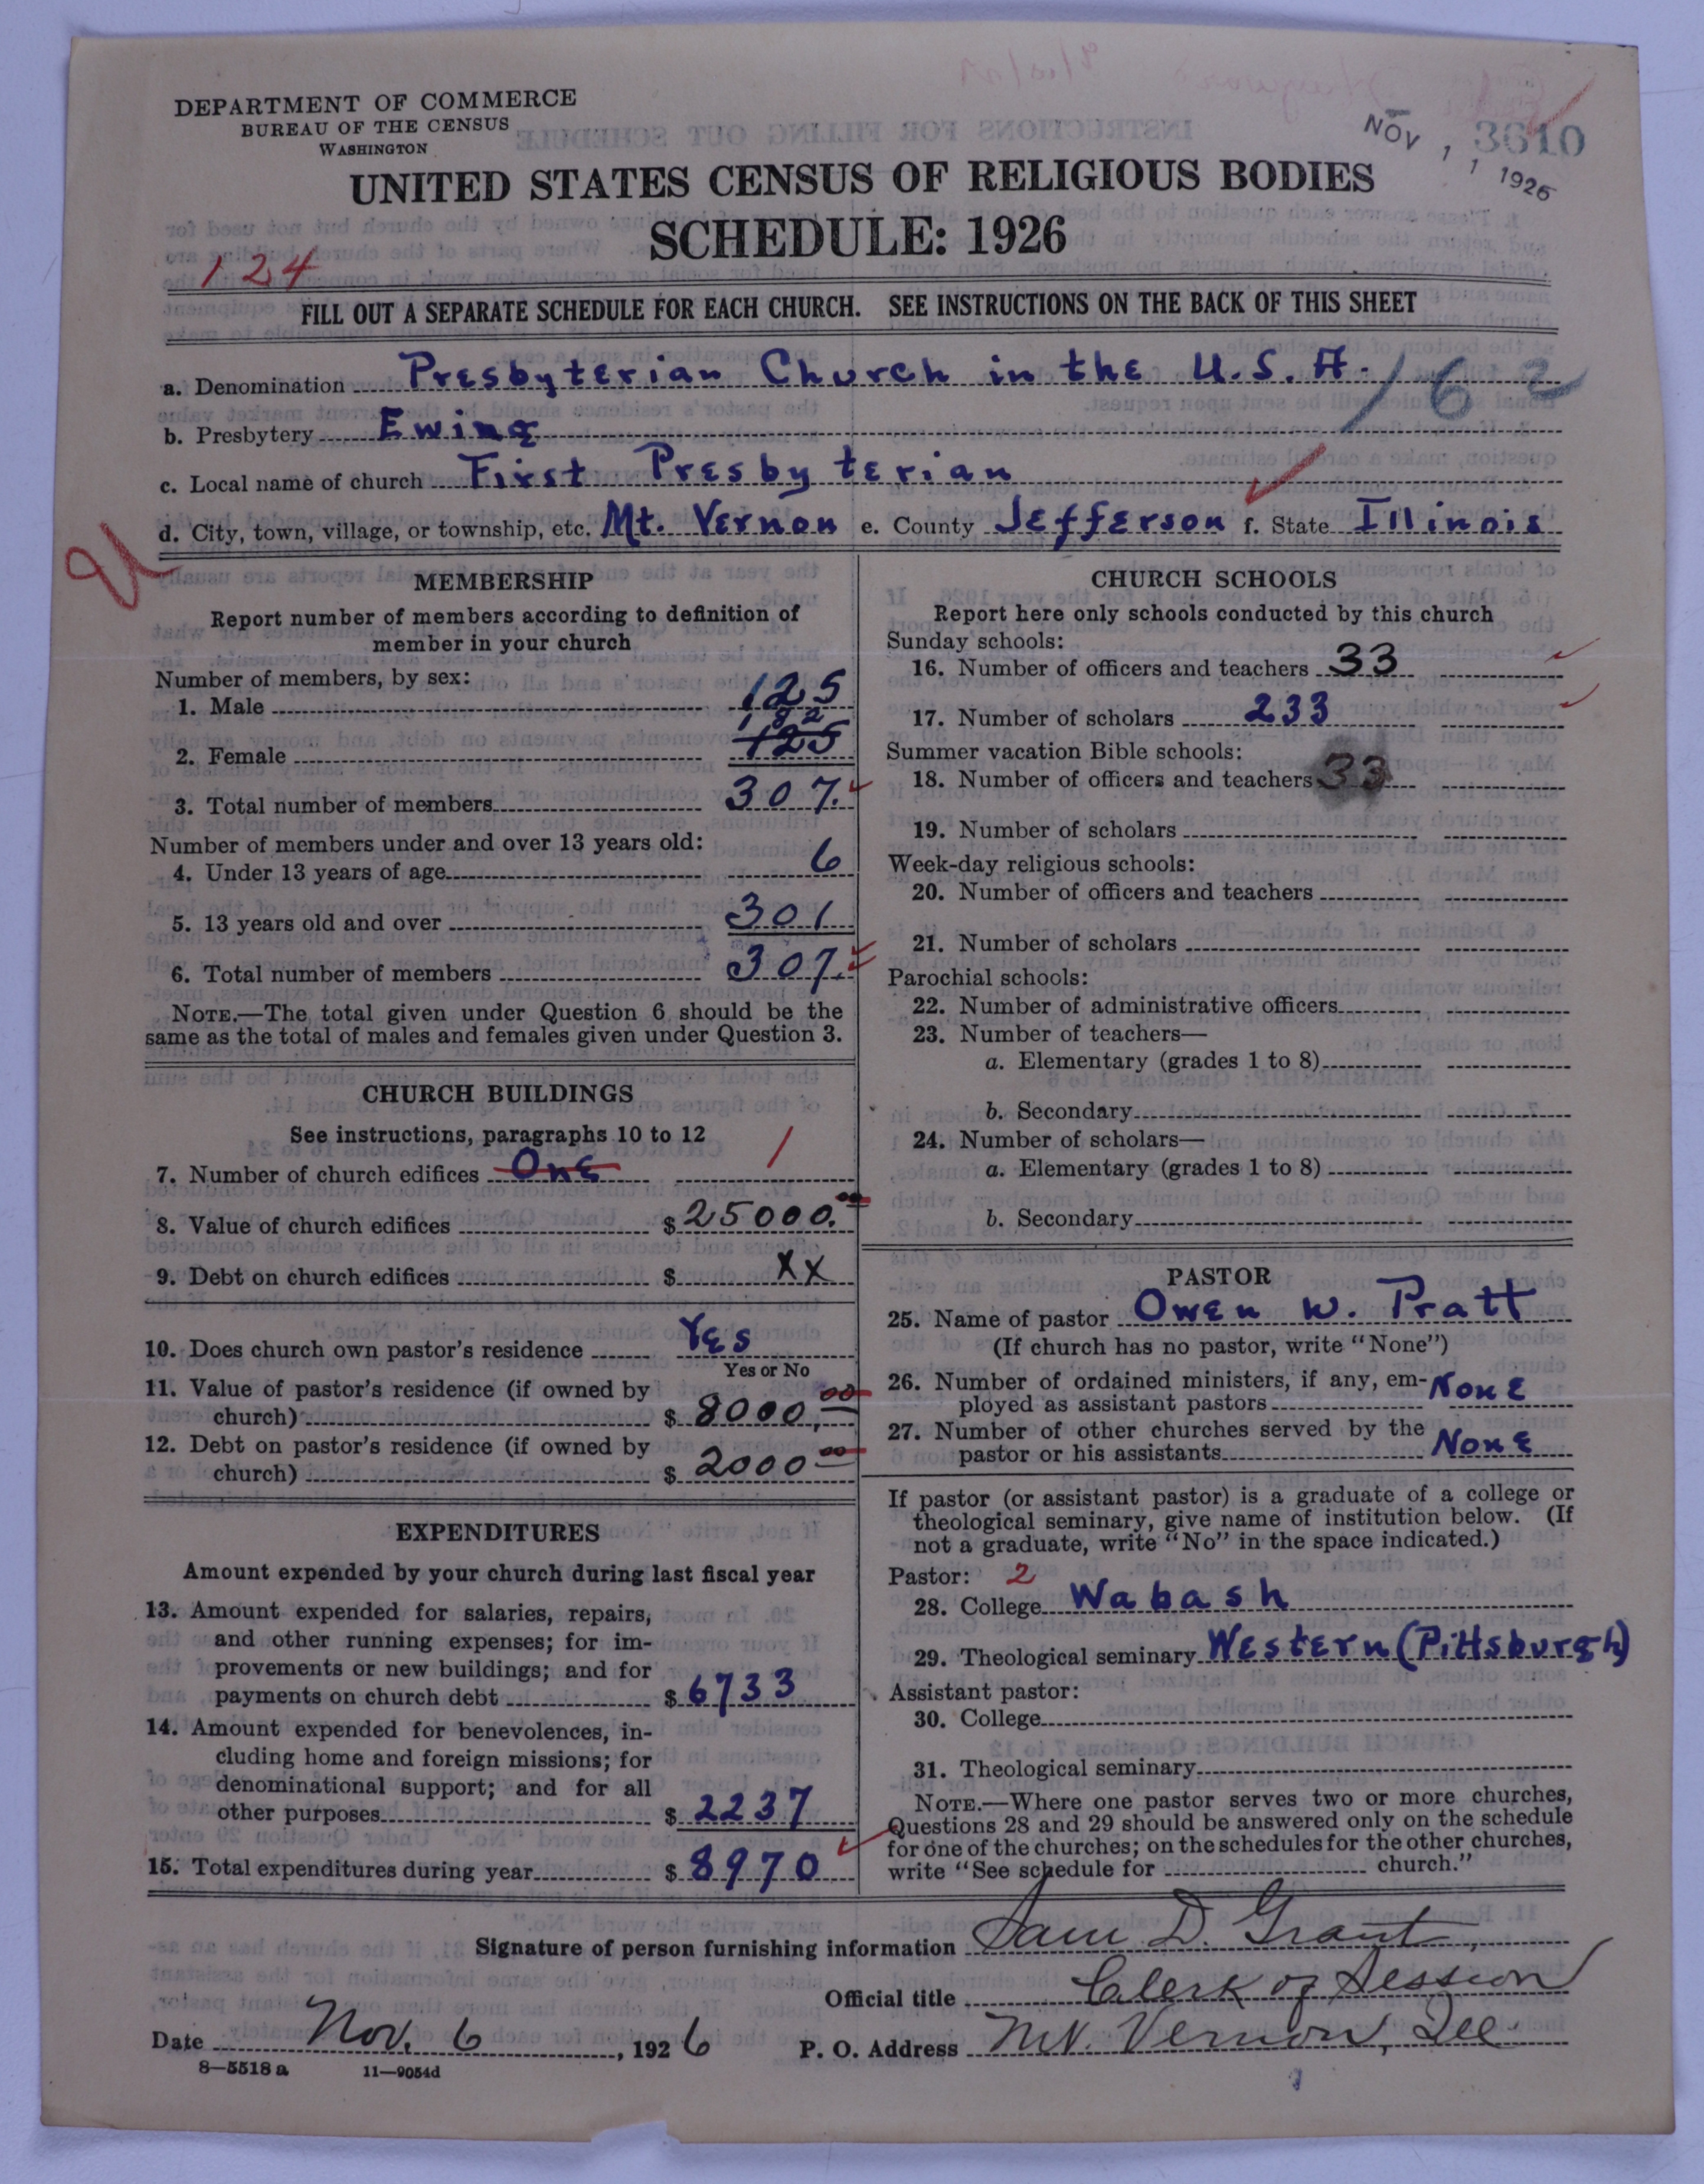 DEPARTMENT OF COMMERCE
BUREAU OF THE CENSUS
WASHINGTON
NOV 11 1926
3610
UNITED STATES CENSUS OF RELIGIOUS BODIES
SCHEDULE: 1926
124
FILL OUT A SEPARATE SCHEDULE FOR EACH CHURCH. SEE INSTRUCTIONS ON THE BACK OF THIS SHEET
a. Denomination Presbyterian Church in the U.S.A. 162
b. Presbytery Ewing
c. Local name of church First Presbyterian
d. City, town, village, or township, etc. Mt. Vernon e. County Jefferson f. State Illinois
MEMBERSHIP
Report number of members according to definition of
member in your church
Number of members, by sex:
1. Male 125
182
2. Female 125
3. Total number of members 307.
Number of members under and over 13 years old:
4. Under 13 years of age 6
5. 13 years old and over 301
6. Total number of members 307.
NOTE.—The total given under Question 6 should be the
same as the total of males and females given under Question 3.
CHURCH BUILDINGS
See instructions, paragraphs 10 to 12
7. Number of church edifices One 1
8. Value of church edifices $ 25000.00
9. Debt on church edifices $ XX
10. Does church own pastor's residence Yes
Yes or No
11. Value of pastor's residence (if owned by
church) $ 8000,00
12. Debt on pastor's residence (if owned by
church) $ 2000 00
EXPENDITURES
Amount expended by your church during last fiscal year
13. Amount expended for salaries, repairs,
and other running expenses; for im-
provements or new buildings; and for
payments on church debt $ 6733
14. Amount expended for benevolences, in-
cluding home and foreign missions; for
denominational support; and for all
other purposes $ 2237
15. Total expenditures during year $ 8970
CHURCH SCHOOLS
Report here only schools conducted by this church
Sunday schools:
16. Number of officers and teachers 33
17. Number of scholars 233
Summer vacation Bible schools:
18. Number of officers and teachers 33
19. Number of scholars
Week-day religious schools:
20. Number of officers and teachers
21. Number of scholars
Parochial schools:
22. Number of administrative officers
23. Number of teachers—
a. Elementary (grades 1 to 8)
b. Secondary
24. Number of scholars—
a. Elementary (grades 1 to 8)
b. Secondary
PASTOR
25. Name of pastor Owen W. Pratt
(If church has no pastor, write "None")
26. Number of ordained ministers, if any, em-
ployed as assistant pastors None
27. Number of other churches served by the
pastor or his assistants None
If pastor (or assistant pastor) is a graduate of a college or
theological seminary, give name of institution below. (If
not a graduate, write "No" in the space indicated.)
Pastor: 2
28. College Wabash
29. Theological seminary Western (Pittsburgh)
Assistant pastor:
30. College
31. Theological seminary
NOTE.—Where one pastor serves two or more churches,
Questions 28 and 29 should be answered only on the schedule
for one of the churches; on the schedules for the other churches,
write "See schedule for church."
Signature of person furnishing information Sam D. Grant,
Official title Clerk of Session
Date Nov. 6, 1926 P. O. Address Mt. Vernon, Ill
8—5518 a 11—9054d